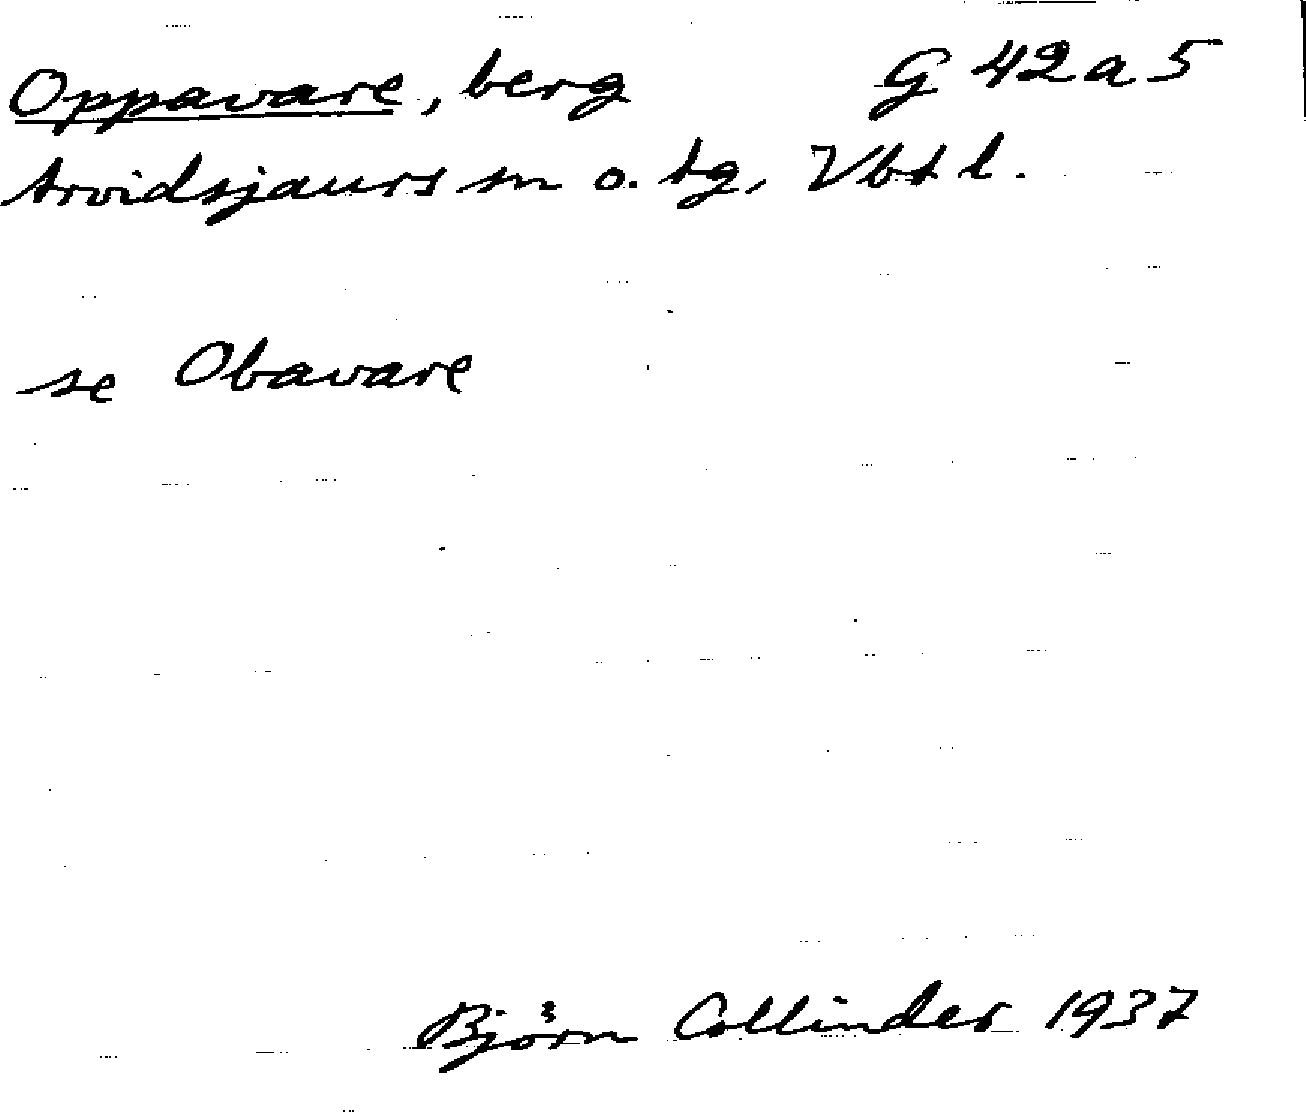 Oppavare, berg G 42 a 5
Arvidsjaurs sn o. tg, Vbt l.
se Obavare
Björn Collinder 1937